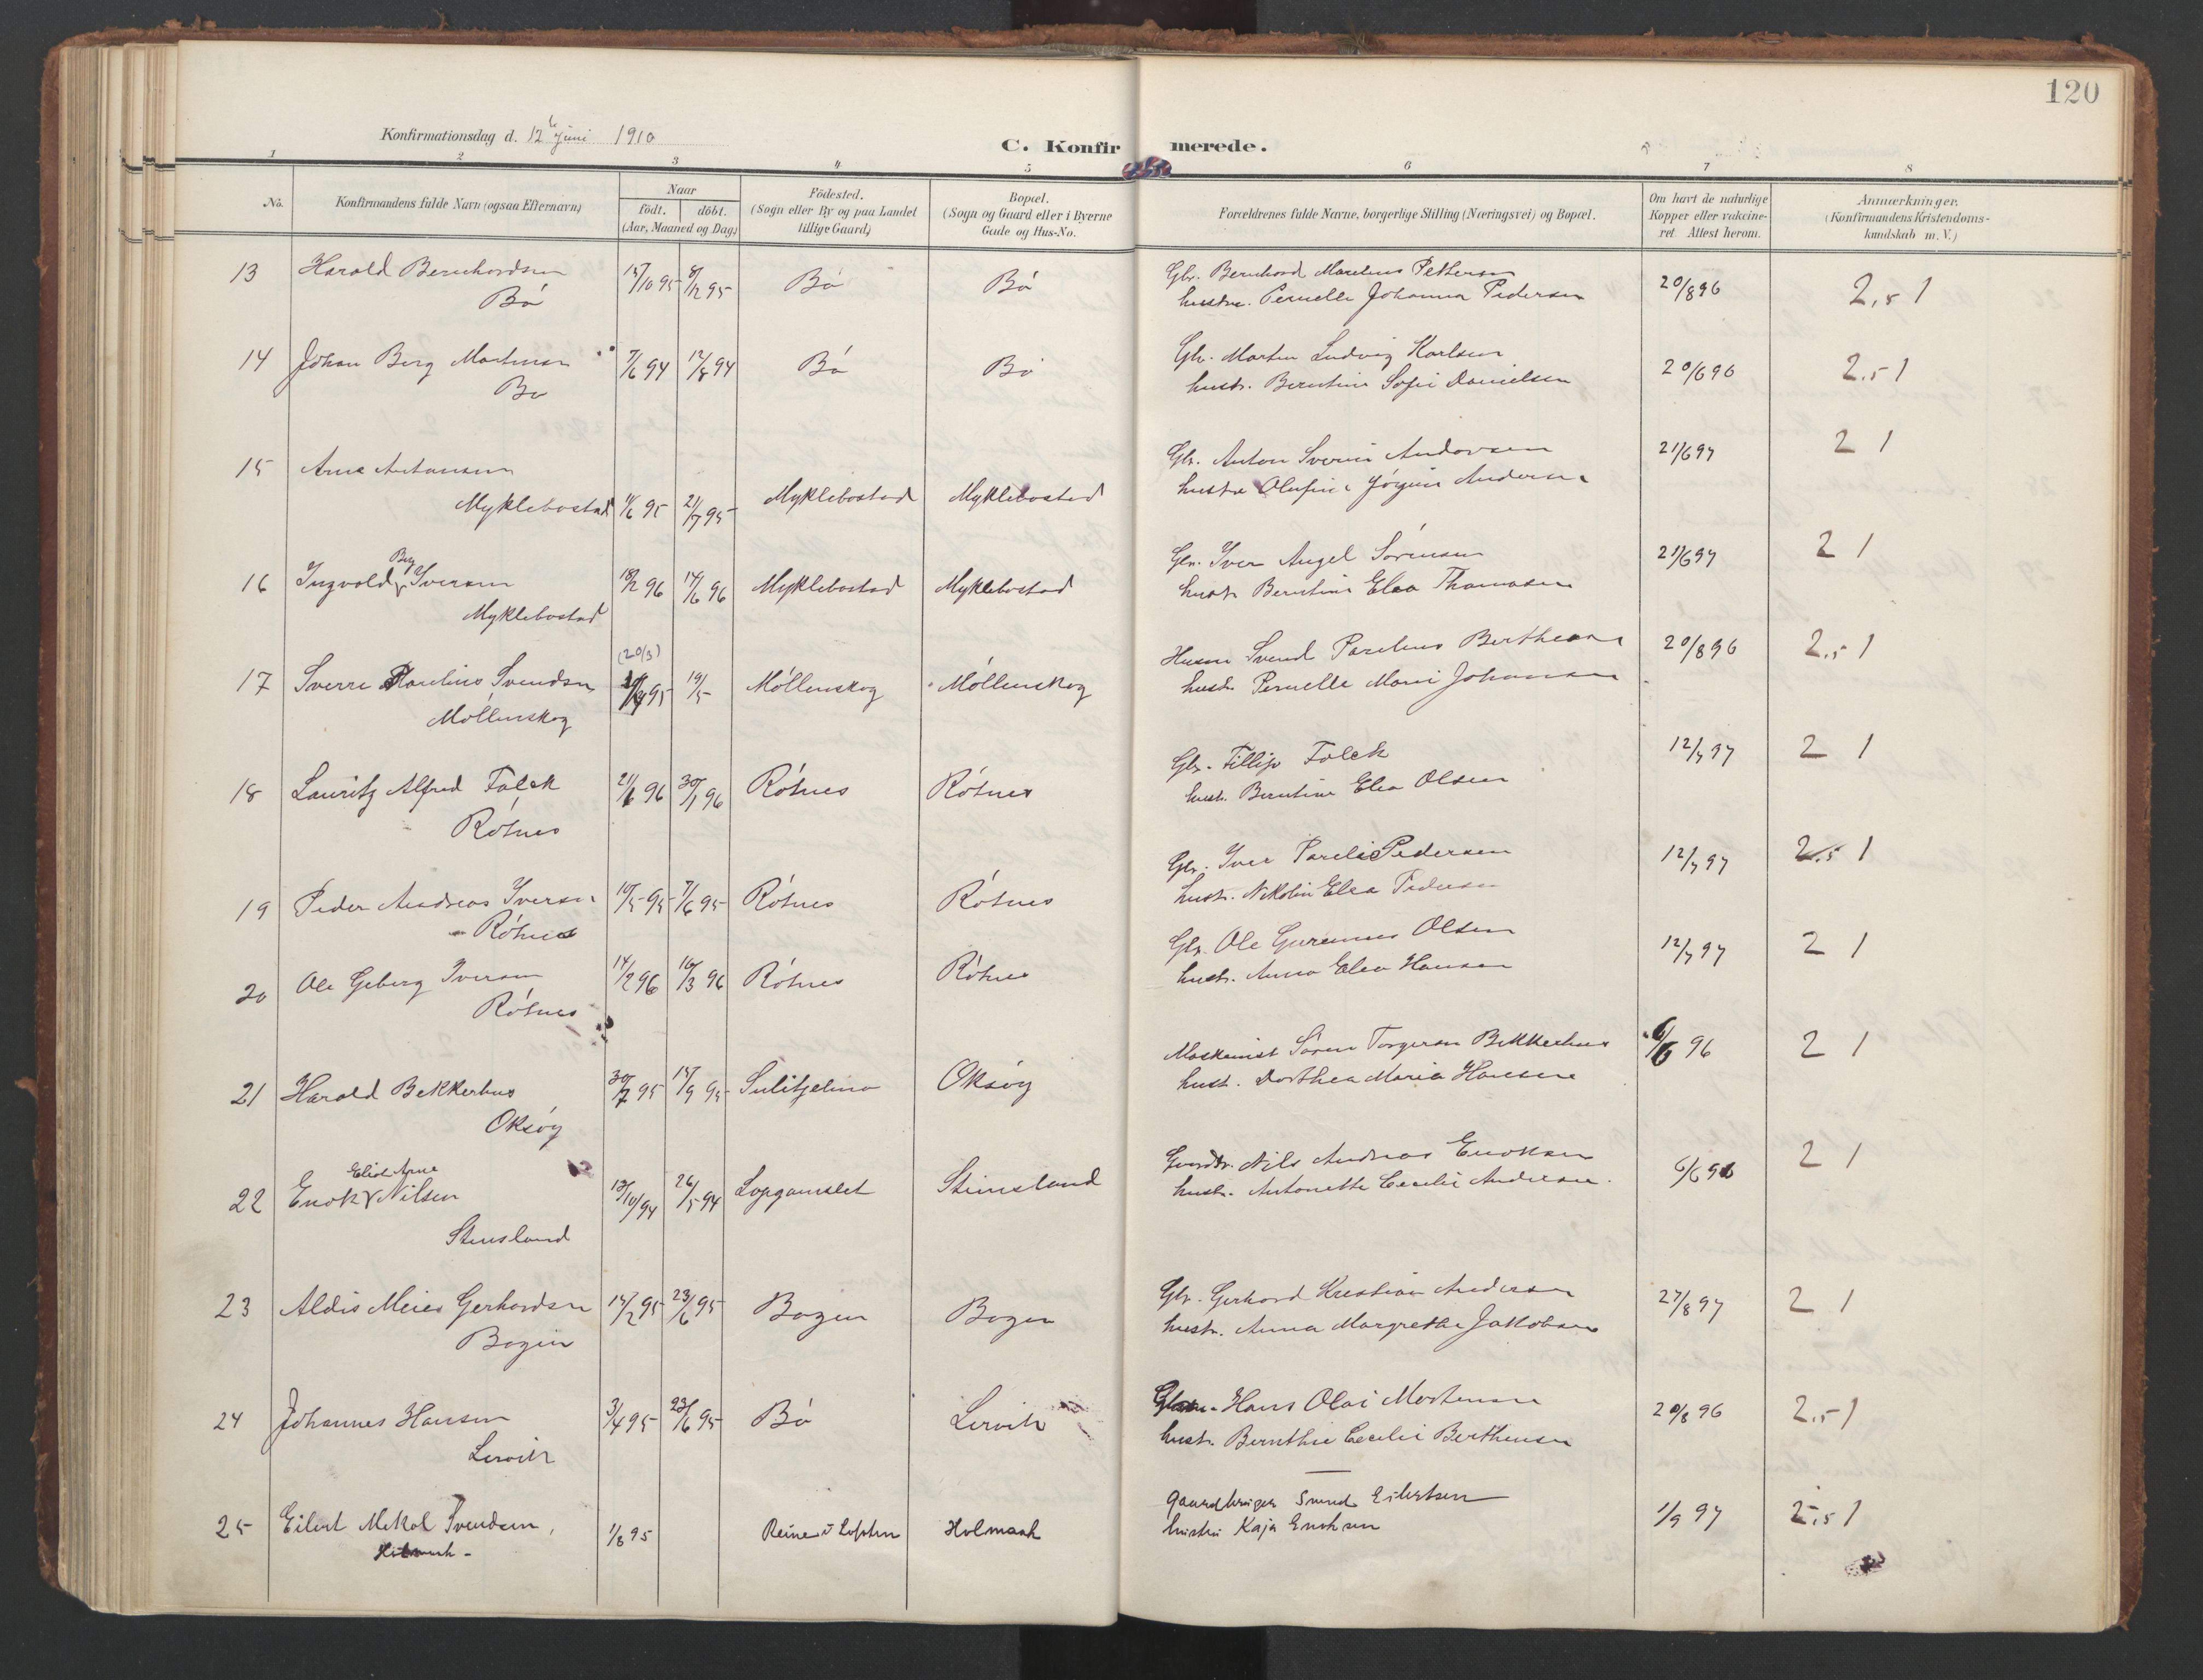 120
Konfirmationsdag d. 12te Juni 1910
C. Konfirmerede.
1 2 3 4 5 6 7 8
No.
Konfirmandens fulde Navn (ogsaa Efternavn)
Naar
födt. döbt.
(Aar, Maaned og Dag)
Födested.
(Sogn eller By og paa Landet
tillige Gaard)
Bopæl.
(Sogn og Gaard eller i Byerne
Gade og Hus-No.
Forældrenes fulde Navne, borgerlige Stilling (Næringsvei) og Bopæl.
Om havt de naturlige
Kopper eller vaccine-
ret. Attest herom.
Anmærkninger.
(Konfirmandens Kristendoms-
kundskab m. V.)
13 Harald Bernhardsen 15/10 95 8/12 95 Bó Bó Gbr. Bernhard Marelius Pettersen 20/8 96 2,5 1
Bó hustru. Pernelle Johanna Pedersen
14 Johan Berg Martinsen 7/6 94 12/8 94 Bó Bó Gbr. Martin Ludvig Karlsen 20/6 96 2.5 1
Bó hustr. Berntine Sofie Danielsen
15 Arne Antonsen Gbr. Anton Sverin Andersen 21/6 97 2 1
Myklebostad 1/6 95 21/7 95 Myklebostad Myklebostad hustru Olufine Jórgine Andersen
Berg
16 Ingvald Iversen 18/2 96 14/6 96 Myklebostad Myklebostad Gbr. Iver Angel Sörensen 21/6 97 2 1
Myklebostad hustr. Berntine Elea Thomasen
(20/3)
17 Sverre Parelius Svendsen 95 19/5 Móllenskog Móllenskog Husm. Svend Parelius Bertheusen 20/8 96 2,5 1
Mollenskog hustr. Pernelle Marie Johansen
18 Lauritz Alfred Falck 21/6 96 30/1 96 Rótnes Rótnes Gbr. Fillip Falck 12/7 97 2 1
Rótnes hustr. Berntine Elea Olsen
19 Peder Andreas Iversen 10/5 95 7/6 95 Rótnes Rótnes Gbr. Iver Pareli Pedersen 12/7 97 2.5 1
Rótnes hustr. Nikolin Elea Pedersen
20 Ole Geberg Iversen 14/2 96 16/3 96 Rótnes Rótnes Gbr. Ole Olsen 12/7 97 2 1
Rótnes hustr. Anna Elea Hansen
21 Harald Bekkerhus 30/7 95 15/9 95 Sulitjelma Oksóy Maskinist Sören Torgersen Bekkerhus 6/6 96 2 1
Oksóy hust. Dorthea Maria Hansen
Eliot Arne
22 Enok Nilsen 13/10/94 26/5 94 Stensland Gaardbr. Nils Andreas Enoksen 6/6 96 2 1
Stensland hustr. Antonette Cecilie Andersen.
23 Aldis Meier Gerhardsen 15/2 95 23/6 95 Bogen Bogen Gbr. Gerhard Kristian Andersen 27/8 97 2 1
Bogen hustr. Anna Margrethe Jakobsen
24 Johannes Hansen 3/4 95 23/6 95 Bó Lervik Hans Olai Mortensen 20/8 96 2,5 1
Lervik hustr. Bernthie Cecilie Berthensen
25 Eilert Mekal Svendsen, 1/8 95 Reine i Lofoten Holmaak gaardbruger Svend Eilertsen 1/9 97 2,5 1
hustru Kaja Enoksen